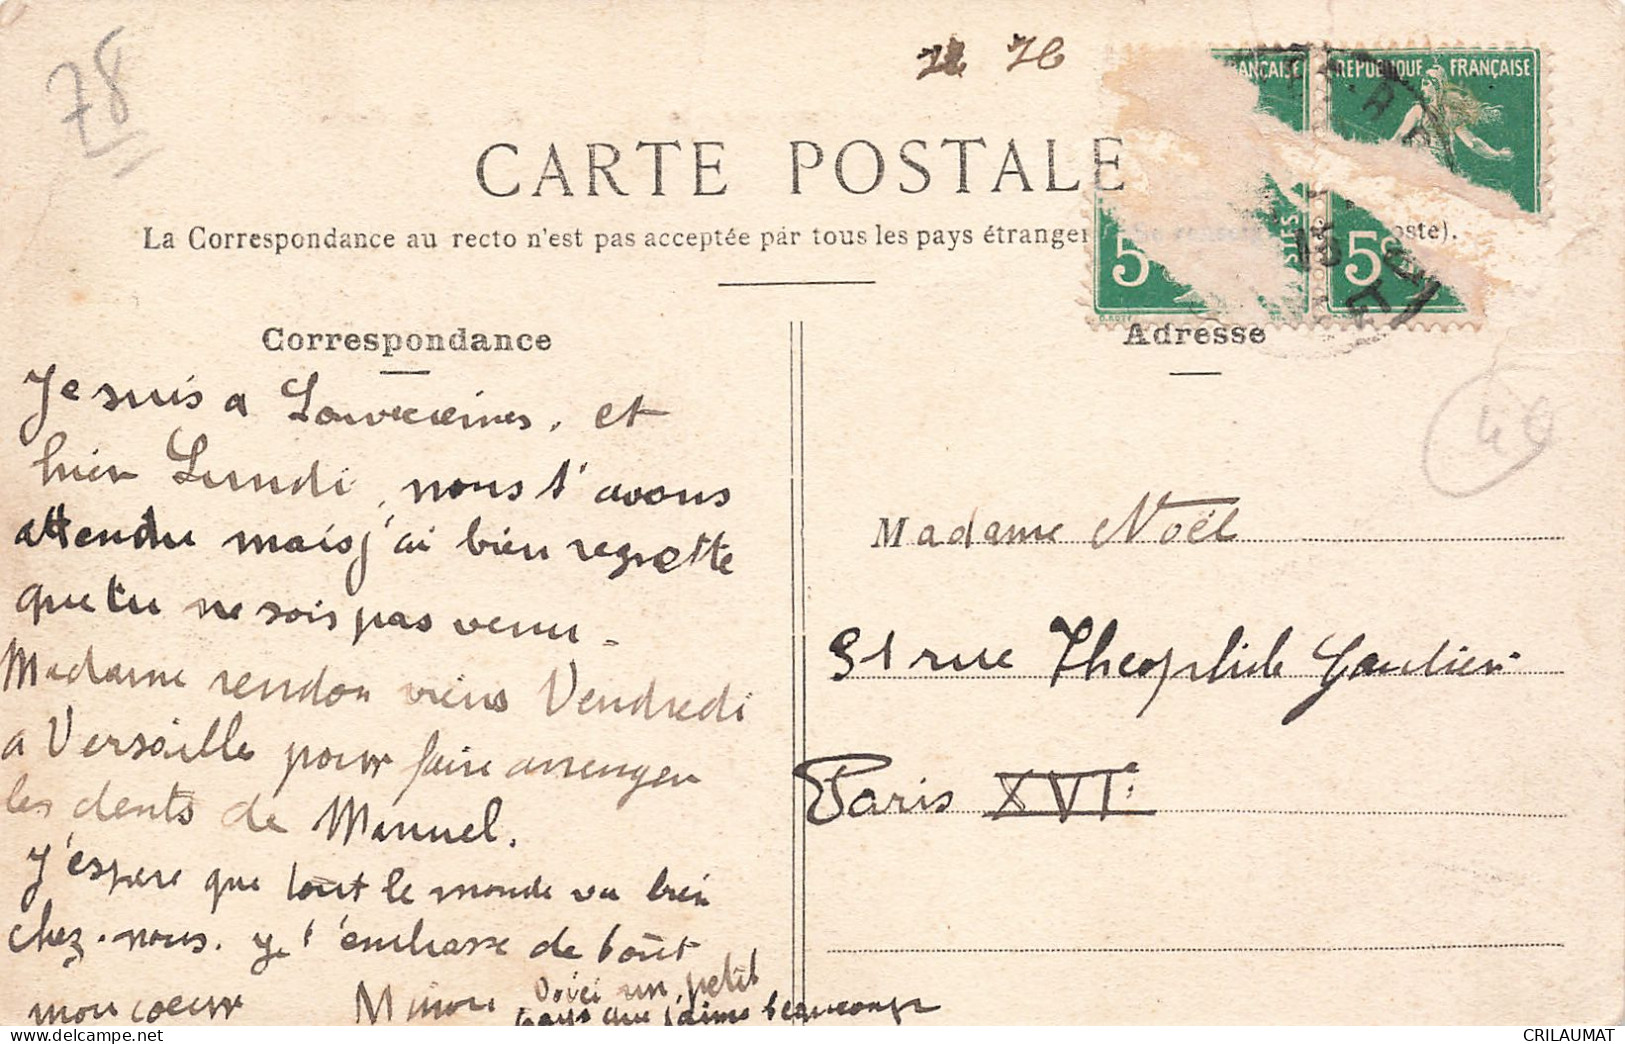 78
76
CARTE POSTALE
La Correspondance au recto n'est pas acceptée par tous les pays étranger
oste).
ANÇAISE
REPUBLIQUE FRANÇAISE
5
5c
Correspondance
Adresse
Je suis a Louveciennes, et
hier Lundi, nous t'avons
attendu mais j'ai bien regrette
que tu ne sois pas venu -
Madame rendon viens Vendredi
a Versaille pour faire arrenger
les dents de Manuel.
J'espere que tout le monde va bien
chez-nous. Je t'embrasse de tout
mon coeur
Voici un petit
pays que j'aime beaucoup
Madame Noël
51 rue Theophile Gautier
Paris XVIe
CRILAUMAT